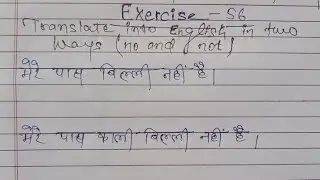 Exercise - 56
Translate into English in two
ways (no and not)
मेरे पास बिल्ली नहीं है।
मेरे पास काली बिल्ली नहीं है।